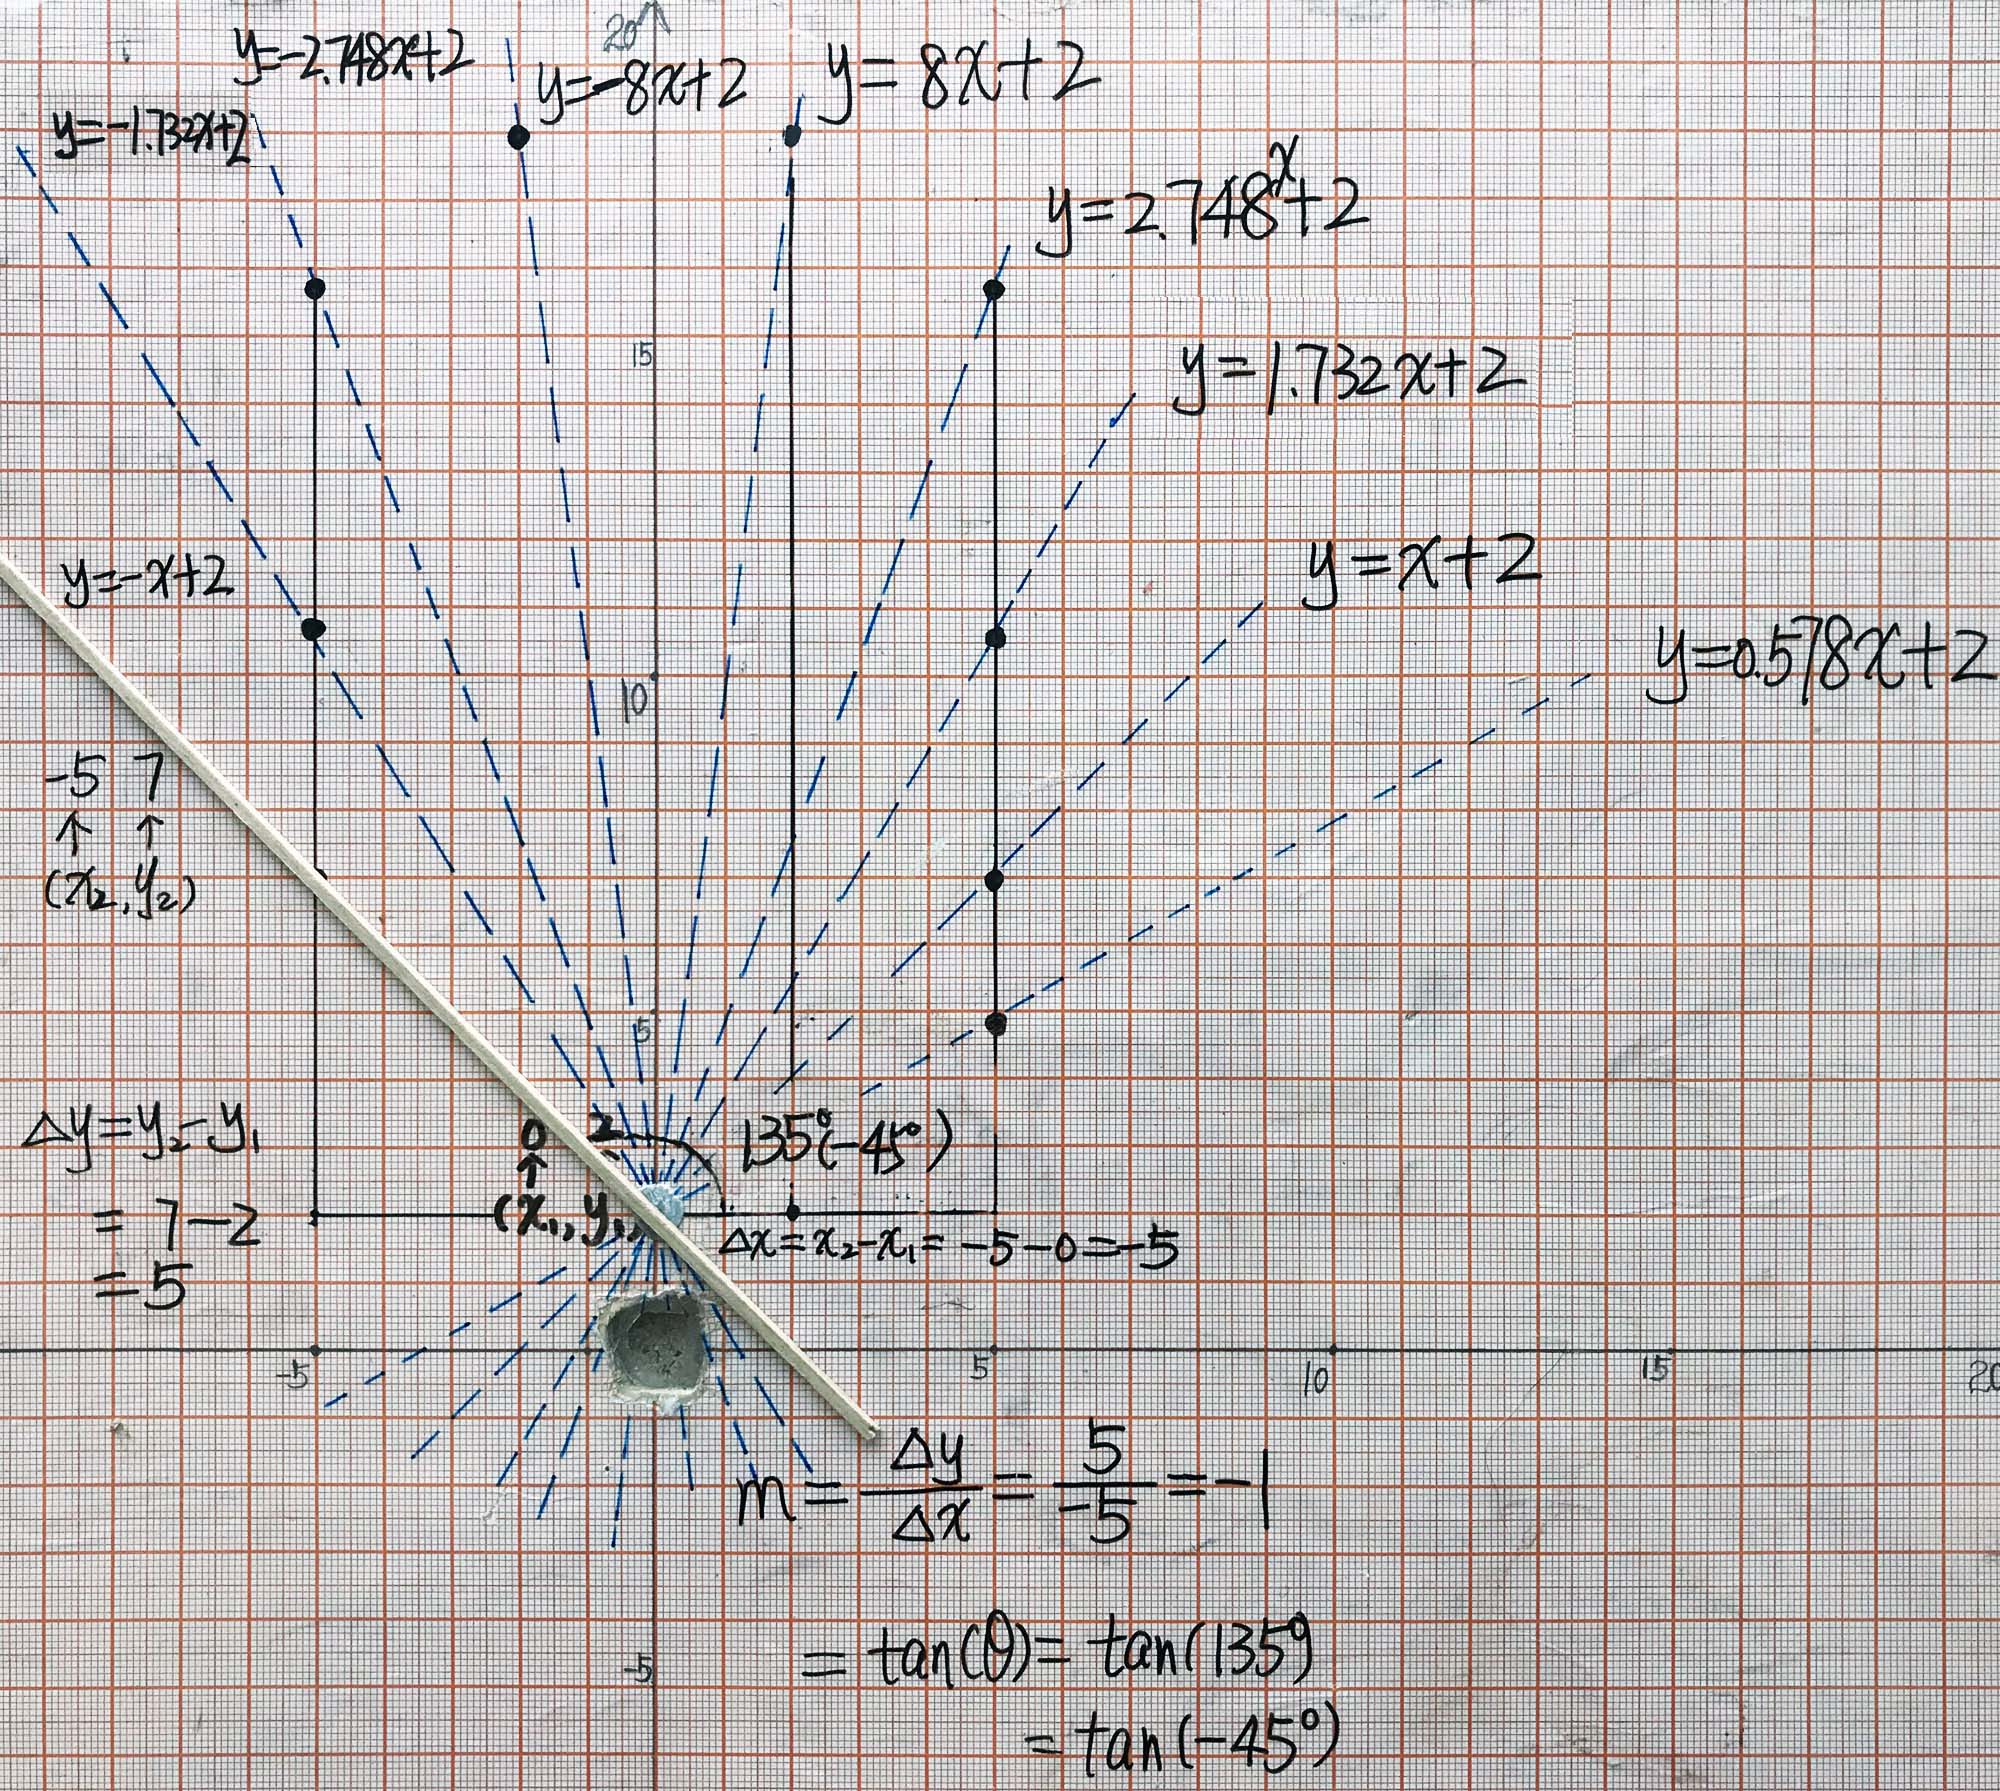 20
y=-2.748x+2
y=-8x+2
y=8x+2
y=-1.732x+2
y=2.748^x+2
15
y=1.732x+2
y=x+2
y=-x+2
y=0.578x+2
10
-5 7
↑ ↑
(x₂, y₂)
5
Δy=y₂-y₁
=7-2
=5
0 2
↑
(x₁, y₁,
135°(-45°)
Δx=x₂-x₁=-5-0=-5
-5 5 10 15 20
m=Δy/Δx=5/-5=-1
=tan(θ)=tan(135°)
-5
=tan(-45°)